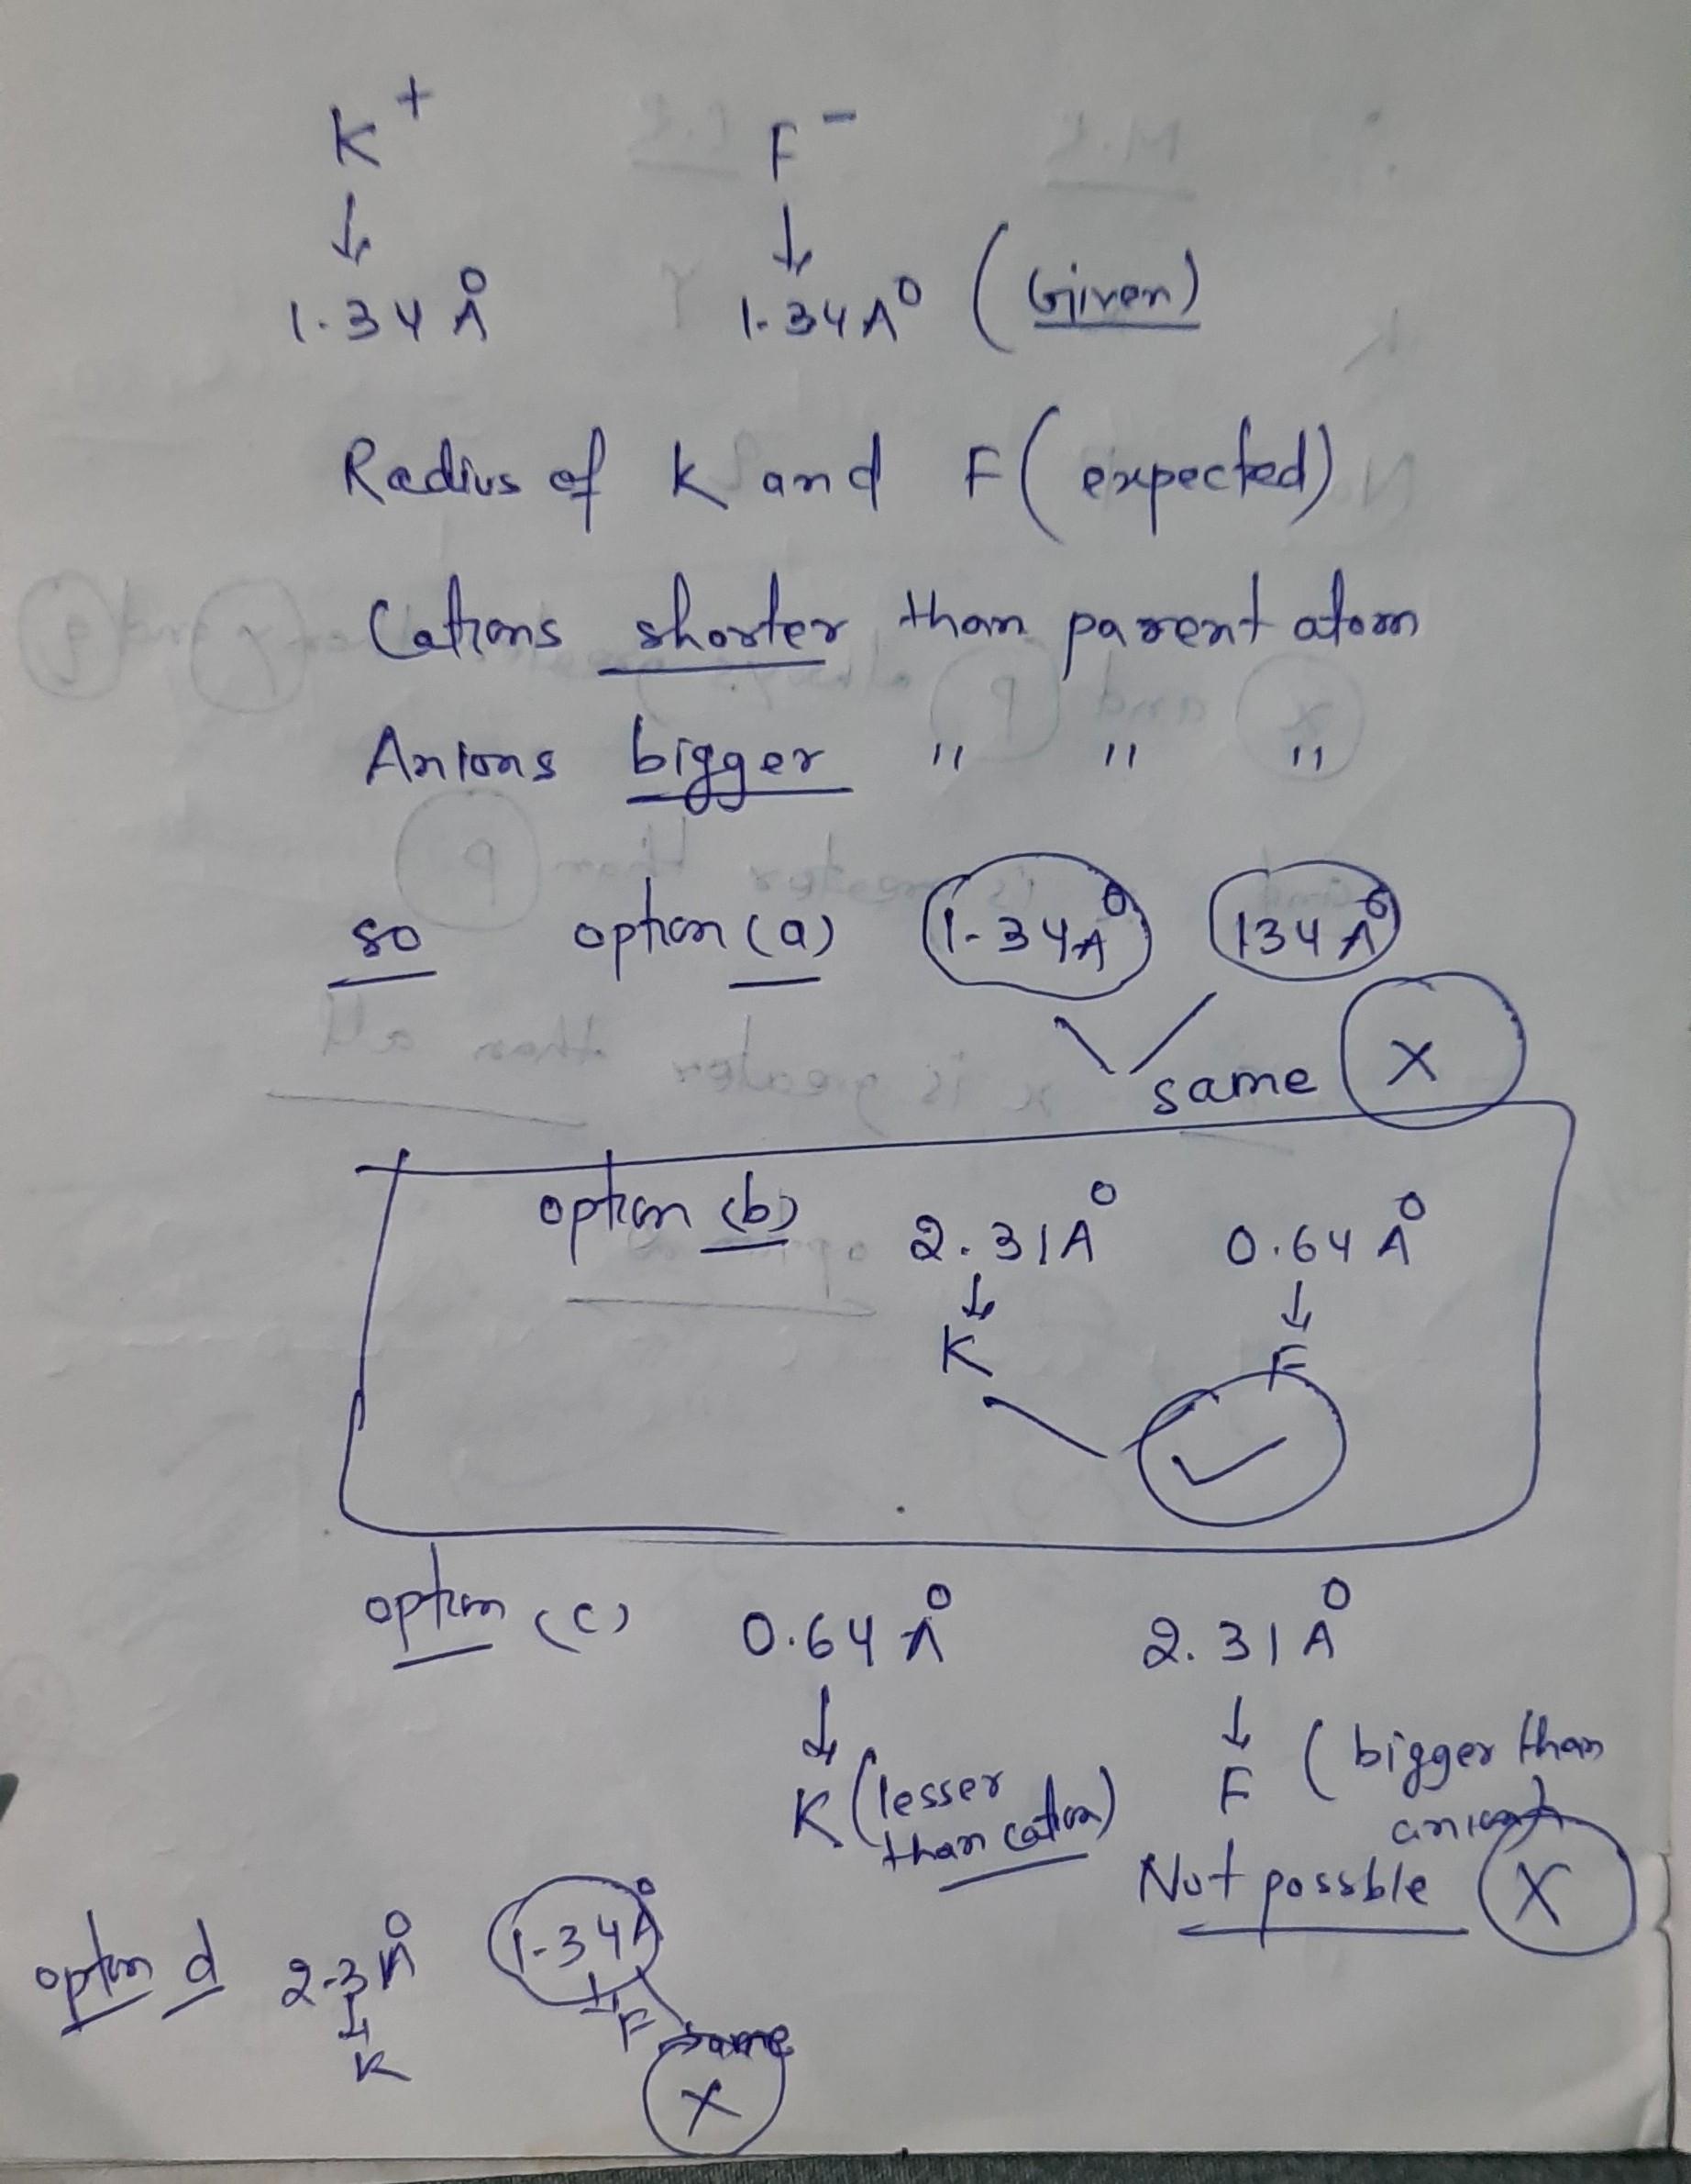 K+ F-
↓ ↓
1.34 Å 1.34A° (Given)
Radius of K and F (expected)
Cations shorter than parent atom
Anions bigger " " "
so option (a) 1.34A° 134A°
same X
option (b) 2.31A° 0.64A°
↓ ↓
K F
✓
option (c) 0.64A° 2.31A°
↓ ↓
K (lesser than cation) F (bigger than anion)
Not possble X
option d 2.31A° 1.34A°
↓ ↓
K F same
X